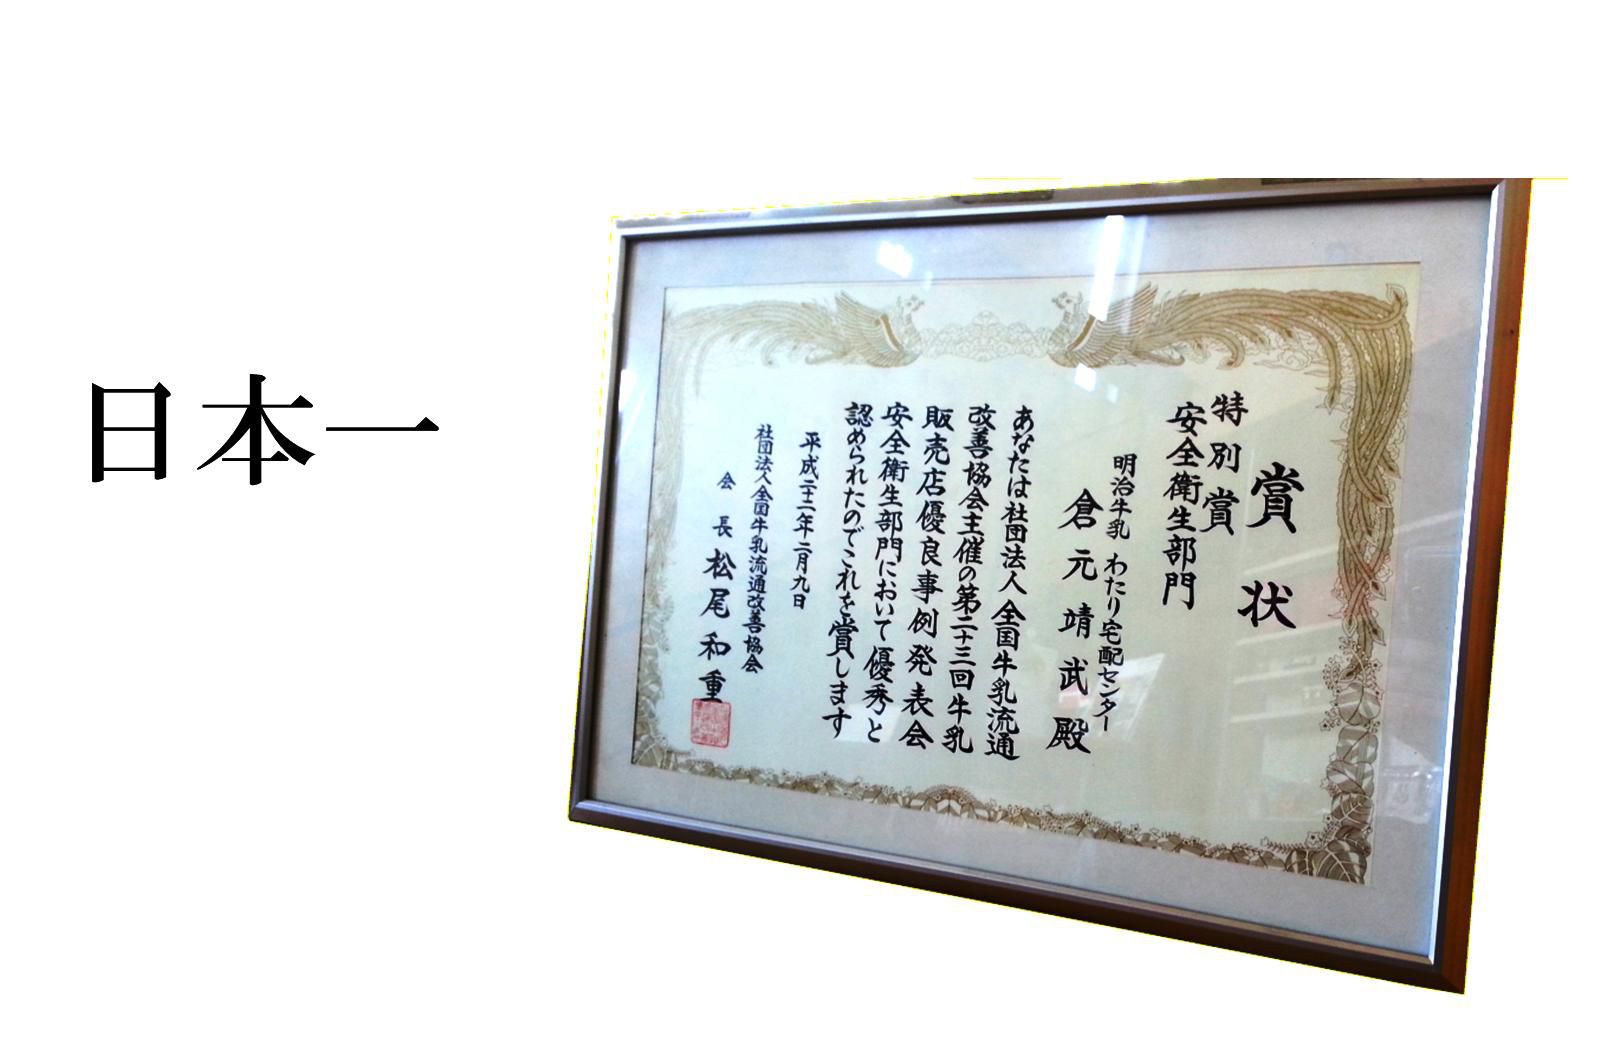 日本一
賞状
特別賞
安全衛生部門
明治牛乳 わたり宅配センター
倉元靖武殿
あなたは社団法人全国牛乳流通
改善協会主催の第二十三回牛乳
販売店優良事例発表会
安全衛生部門において優秀と
認められたのでこれを賞します
平成二十二年二月九日
社団法人全国牛乳流通改善協会
会長 松尾和重